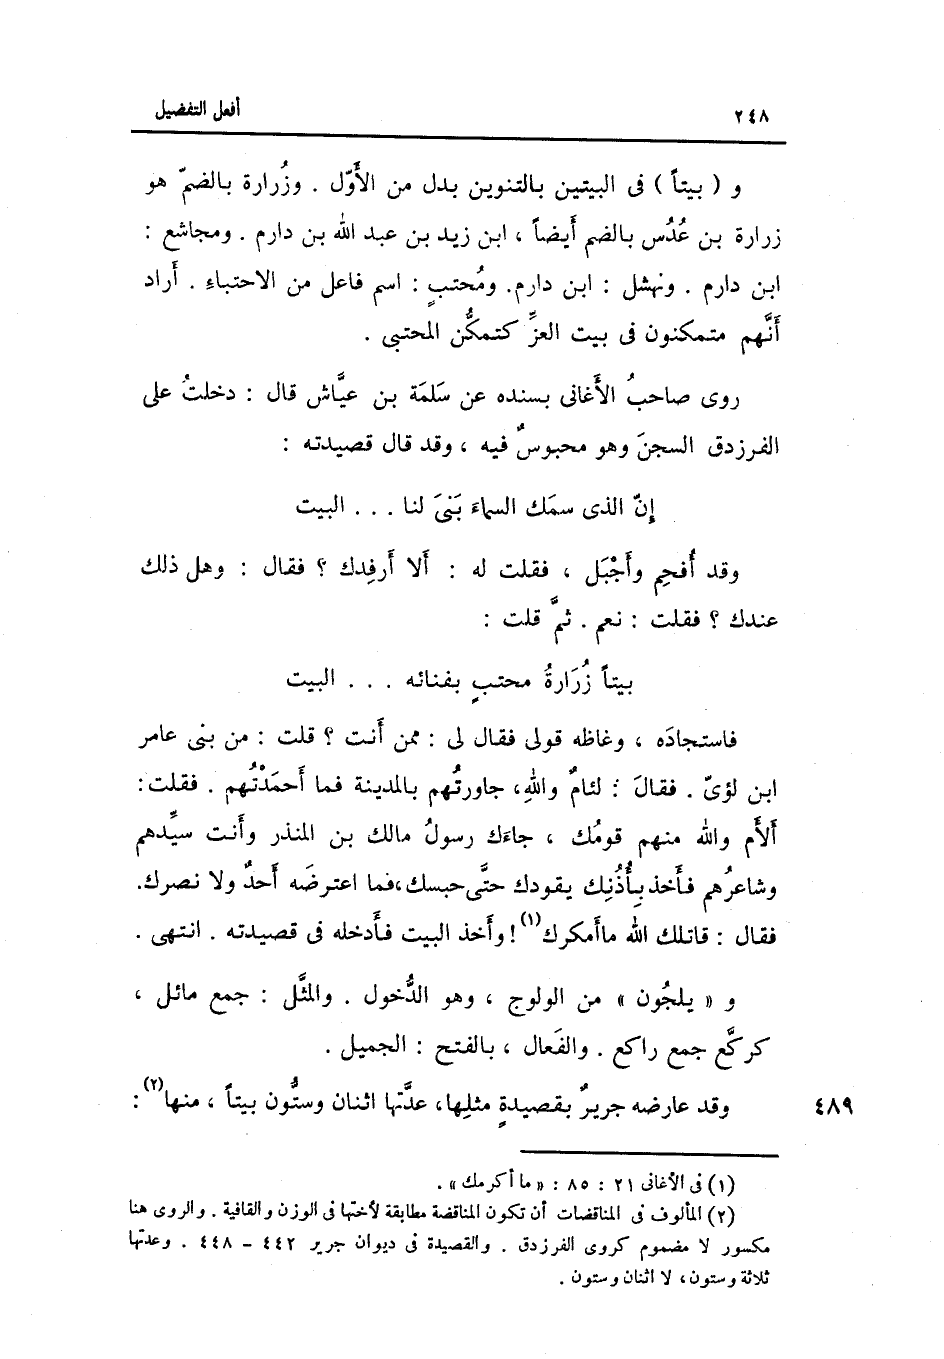 ٢٤٨
أفعل التفضيل
و ( بيتاً ) فى البيتين بالتنوين بدل من الأَوّل . وزُرارة بالضمّ هو
زرارة بن عُدُس بالضم أَيضاً ، ابن زيد بن عبد الله بن دارم . ومجاشع :
ابن دارم . ونهشل : ابن دارم. ومُحتبٍ : اسم فاعل من الاحتباء . أَراد
أَنَّهم متمكنون فى بيت العزِّ كتمكُّن المحتبى .
روى صاحبُ الأَغانى بسنده عن سَلَمَة بن عيَّاش قال : دخلتُ على
الفرزدق السجنَ وهو محبوسٌ فيه ، وقد قال قصيدته :
إِنّ الذى سمَك السماءَ بَنَىَ لنا . . . البيت
وقد أُفحِم وأَجْبَل ، فقلت له : أَلا أَرفِدك ؟ فقال : وهل ذلك
عندك ؟ فقلت : نعم . ثمَّ قلت :
بيتاً زُرَارةُ محتبٍ بفنائه . . . البيت
فاستجادَه ، وغاظه قولى فقال لى : ممن أَنت ؟ قلت : من بنى عامر
ابن لؤىّ . فقالَ : لئامٌ واللهِ، جاورتُهم بالمدينة فما أَحمَدْتُهم . فقلت:
أَلأَم والله منهم قومُك ، جاءَك رسولُ مالك بن المنذر وأَنت سيِّدهم
وشاعرُهم فأَخذ بِأُذُنِك يقودك حتَّى حبسك،فما اعترضَه أَحدٌ ولا نصرك.
فقال : قاتلك الله ماأَمكرك(١)! وأَخذ البيت فأَدخله فى قصيدته . انتهى .
و « يلجُون » من الولوج ، وهو الدُّخول . والمثَّل : جمع ماثل ،
كركَّع جمع راكع . والفَعال ، بالفتح : الجميل .
وقد عارضه جريرٌ بقصيدةٍ مثلِها، عدَّتها اثنان وستُّون بيتاً ، منها(٢) :
٤٨٩
(١) فى الأغانى ٢١ : ٨٥ : « ما أكرمك » .
(٢) المألوف فى المناقضات أن تكون المناقضة مطابقة لأختها فى الوزن والقافية . والروى هنا
مكسور لا مضموم كروى الفرزدق . والقصيدة فى ديوان جرير ٤٤٢ – ٤٤٨ . وعدتها
ثلاثة وستون ، لا اثنان وستون .